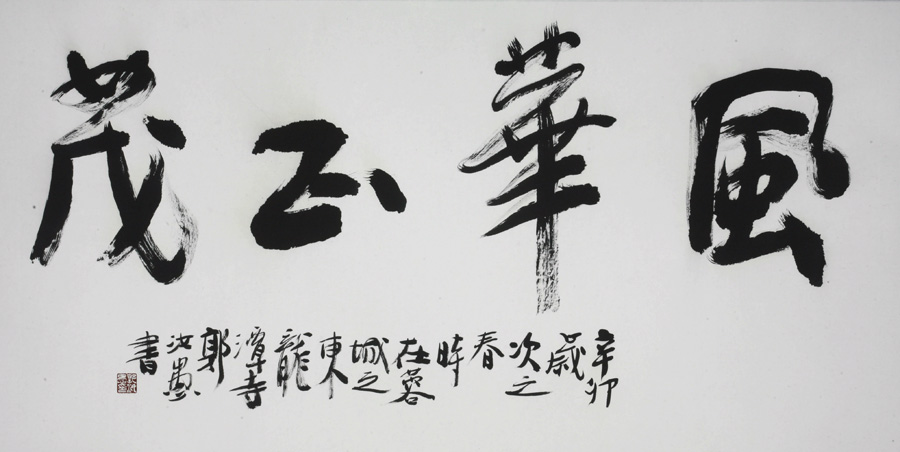 風華正茂
辛卯歲次之春時在蓉城之東龍潭寺郭汝愚書